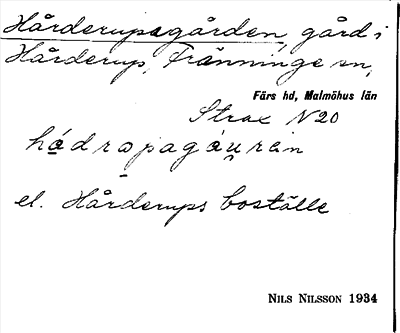 Hårderupsgården, gård i
Hårderup, Tränninge sn,
Färs hd, Malmöhus län
Strax N 20
hǻdrapagáu̯rән
el. Hårderups boställe
NILS NILSSON 1934